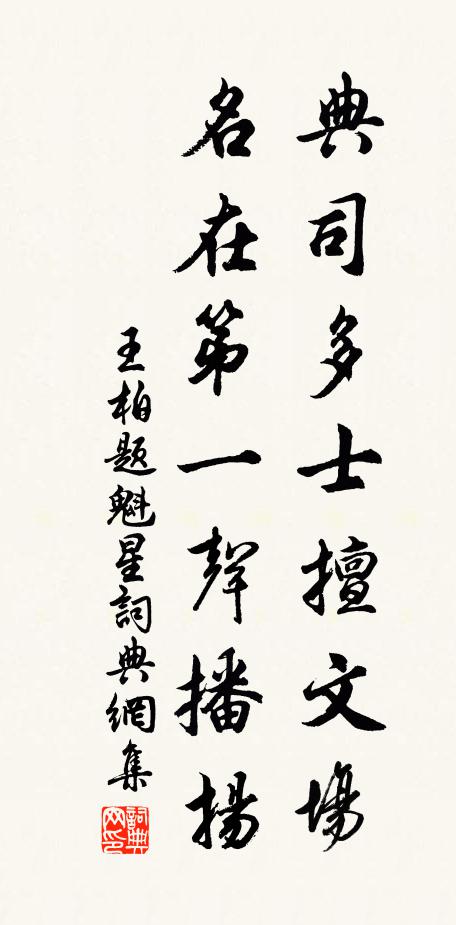 典司多士擅文場
名在第一聲播揚
王柏題魁星詞典網集
詞典網印